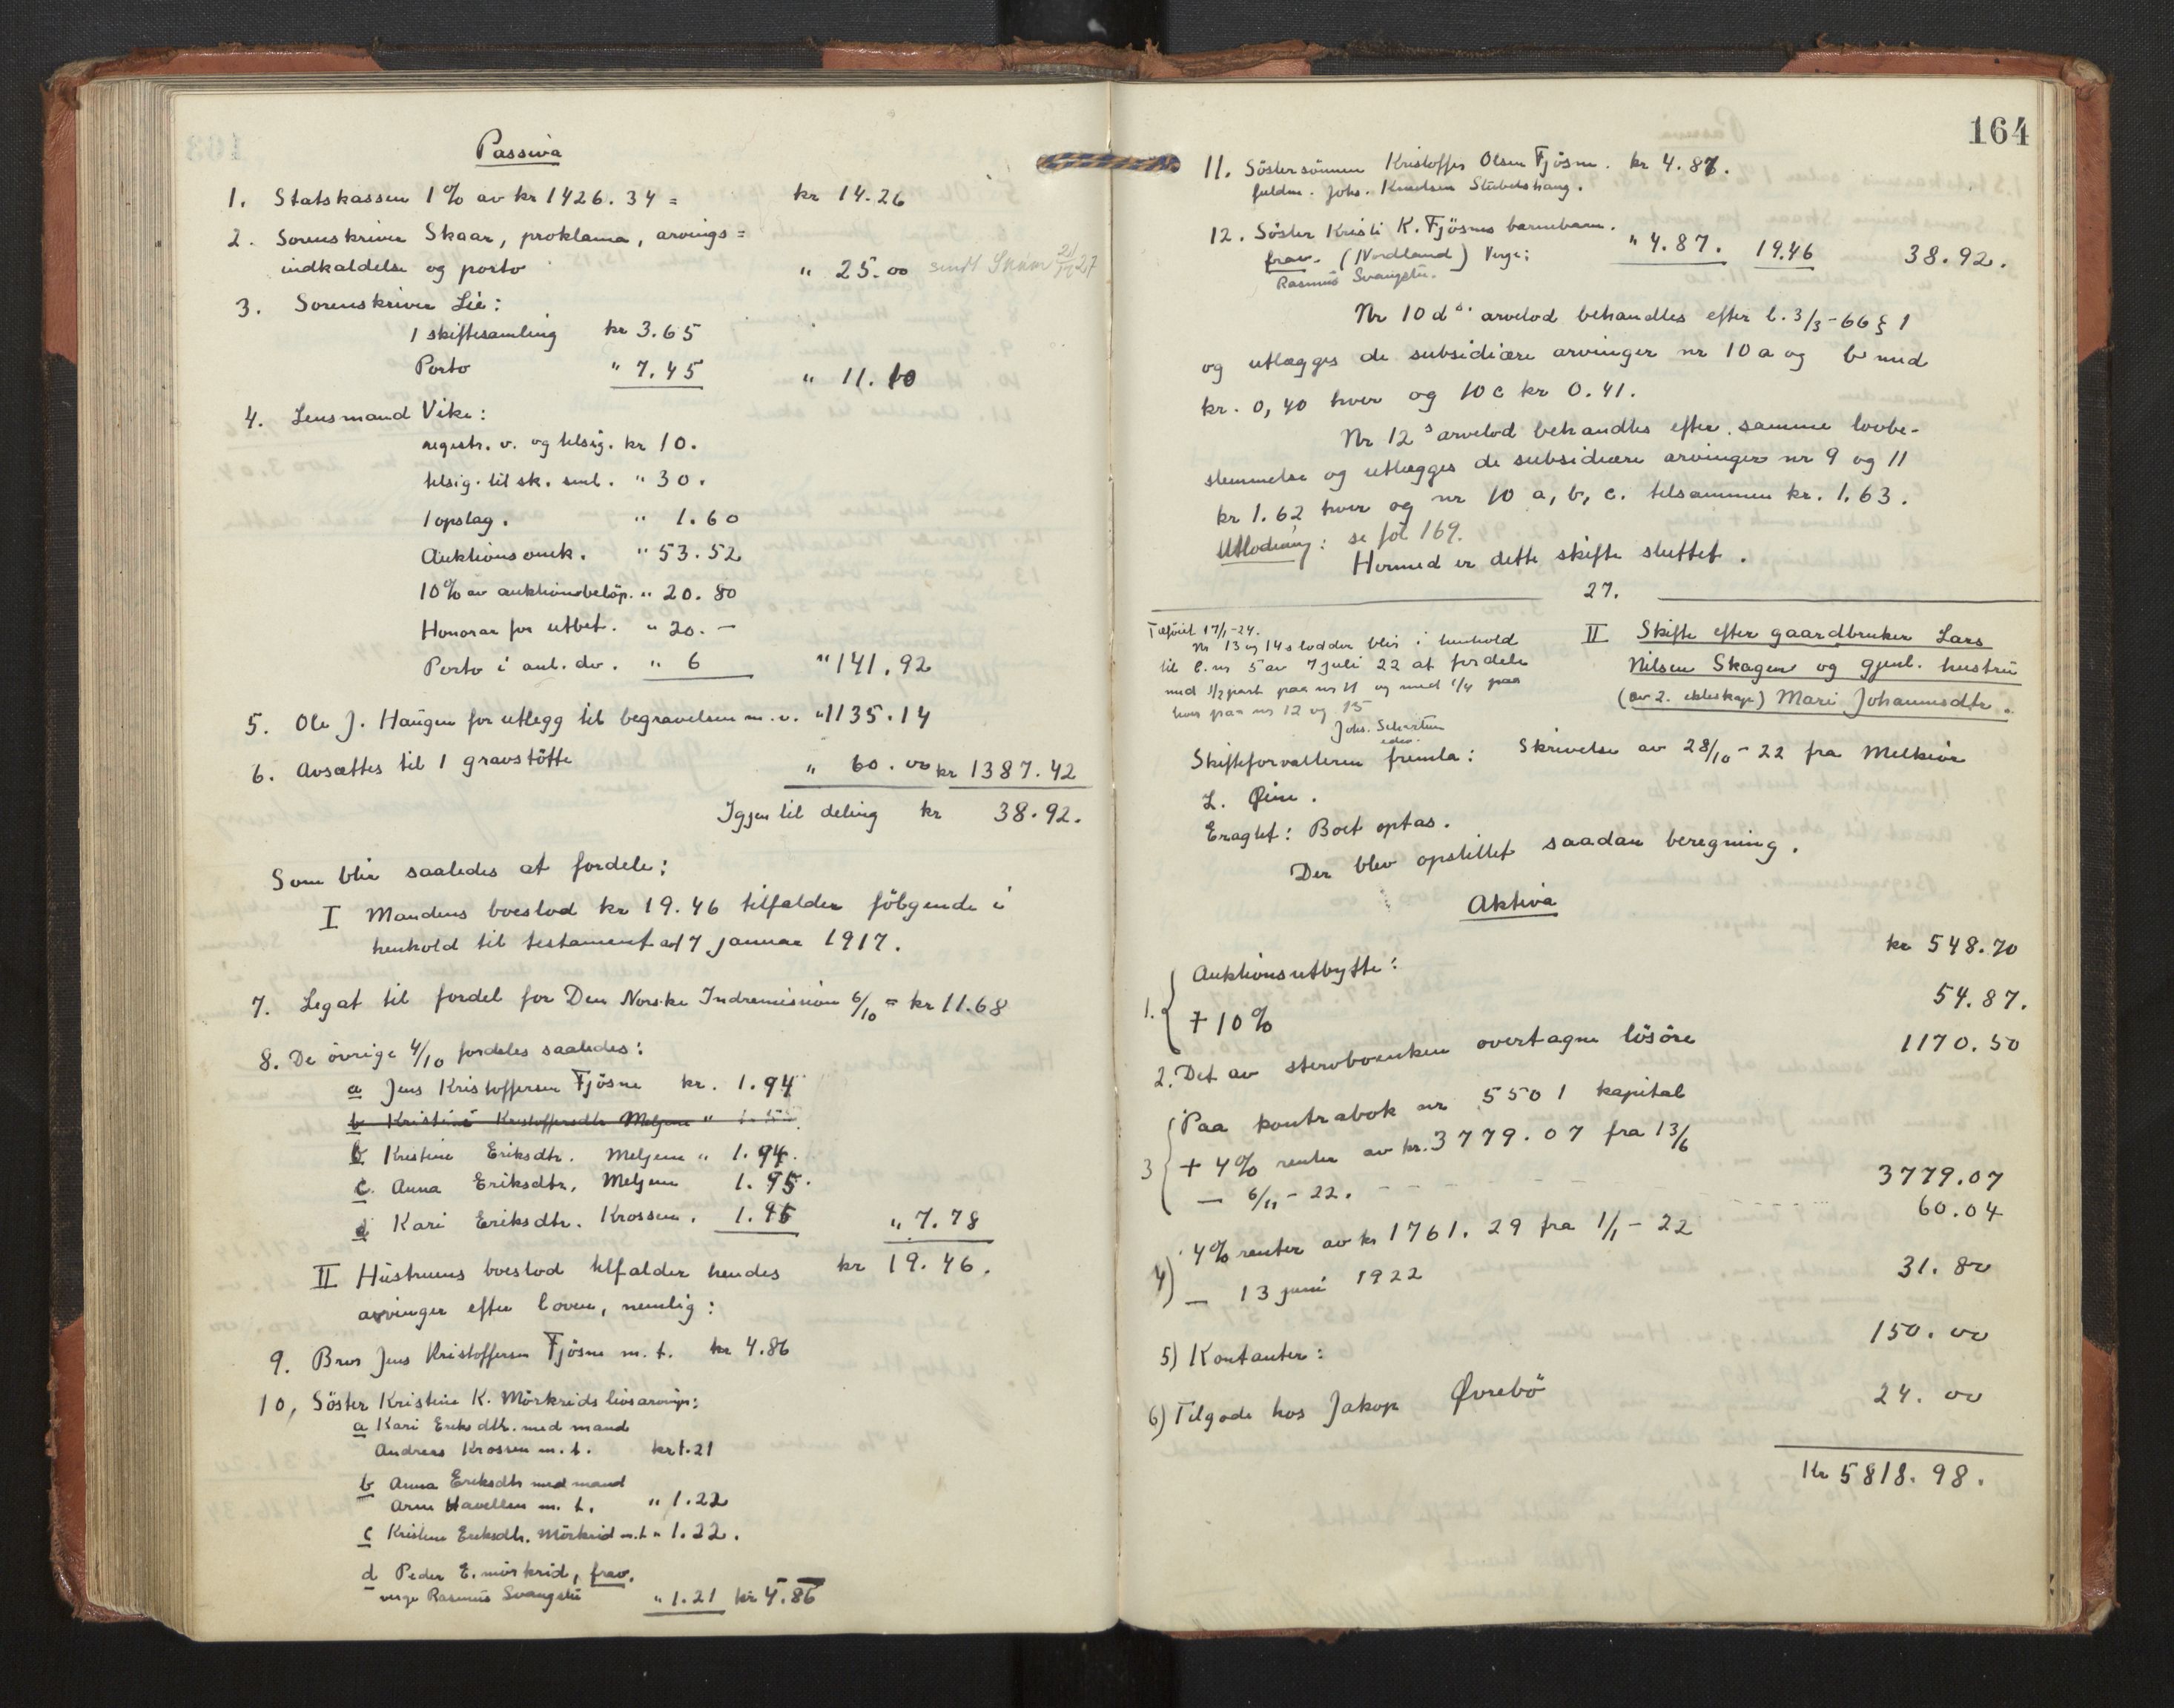 Passiva
1. Statskassen 1% av kr 1426.34 = kr 14.26
2. Sorenskriver Skaar, proklama, arvings=
indkaldelse og porto " 25.00 sendt Skaar
3. Sorenskriver Lie:
1 skiftesamling kr 3.65
Porto " 7.45 " 11.10
4. Lensmand Vike:
registr. v. og tilsig. kr 10.
tilsig. til sk. saml. " 30.
1 opslag. " 1.60
Auktionsomk. " 53.52
10% av auktionsbeløp. " 20.80
Honorar for utbet. " 20.—
Porto i anl. do. " 6 " 141.92
5. Ole J. Haugen for utlegg til begravelsen m.v. " 1135.14
6. Avsættes til 1 gravstötte " 60.00 kr 1387.42
Igjen til deling kr 38.92.
Som blir saaledes at fordele:
I Mandens boeslod kr 19.46 tilfalder fölgende i
henhold til testament av 7 januar 1917.
7. Legat til fordel for Den Norske Indremission 6/10 = kr 11.68
8. De övrige 4/10 fordeles saaledes:
a Jens Kristoffersen Fjösne kr. 1.94
b Kristine Kristoffersdtr Meljem "
b Kristine Eriksdtr. Meljem " 1.94.
c. Anna Eriksdtr, Meljem 1.95.
d Kari Eriksdtr. Krossen. 1.95 " 7.78
II Hustruens boeslod tilfalder hendes kr 19.46.
arvinger efter loven, nemlig:
9. Bror Jens Kristoffersen Fjösne m.t. kr 4.86
10, Söster Kristine K. Mörkrids livsarving:
a Kari Eriksdtr. med mand
Andreas Krossen m.t. kr 1.21
b Anna Eriksdtr med mand
Arne Havellen m.t. " 1.22
c Kristine Eriksdtr. Mörkrid m.t " 1.22.
d Peder E. mörkrid, frav.
verge Rasmus Svangstu " 1.21 kr 4.86
164
11. Söstersönnen Kristoffer Olsen Fjösne. kr 4.87.
fuldm. Johs. Knudsen Stubelshaug.
12. Söster Kristi K. Fjösnes barnebarn.
frav. (Nordland) Verge: " 4.87. 19.46 38.92.
Rasmus Svangstu.
Nr 10 ds. arvelod behandles efter l. 3/3-66 § 1
og utlægges de subsidiære arvinger nr 10 a og b med
kr. 0,40 hver og 10 c kr 0.41.
Nr 12s arvelod behandles efter samme lovbe-
stemmelse og utlægges de subsidiære arvinger nr 9 og 11
kr 1.62 hver og nr 10 a, b, c. tilsammen kr. 1.63.
Utlodning: se fol 169.
Hermed er dette skifte sluttet.
27.
Tilföiet 17/1-24.
Nr 13 og 14s lodder blir i henhold
til l. nr 5 av 7 juli 22 at fordele
med 1/2 part paa nr 11 og med 1/4 paa
hver paa nr 12 og 15
Johs. Sehertun
edsv.
II Skifte efter gaardbruker Lars
Nilsen Skagen og gjenl. hustru
(av 2. ekteskap) Mari Johannesdtr.
Skifteforvalteren fremla: Skrivelse av 28/10-22 fra Melkior
L. Øien.
Eragtet: Boet optas.
Der blev opstillet saadan beregning.
Aktiva
1. Auktionsutbytte: kr 548.70
+ 10% 54.87.
2. Det av stervboenken overtagne lösöre 1170.50
3 Paa kontrabok nr 5501 kapital
+ 4% renter av kr. 3779.07 fra 13/6
— 6/11-22. 3779.07
60.04
4) 4% renter av kr 1761.29 fra 1/1-22
— 13 juni 1922 31.80
5) Kontanter: 150.00
6) Tilgode hos Jakop Øvrebö 24.00
Kr 5818.98.